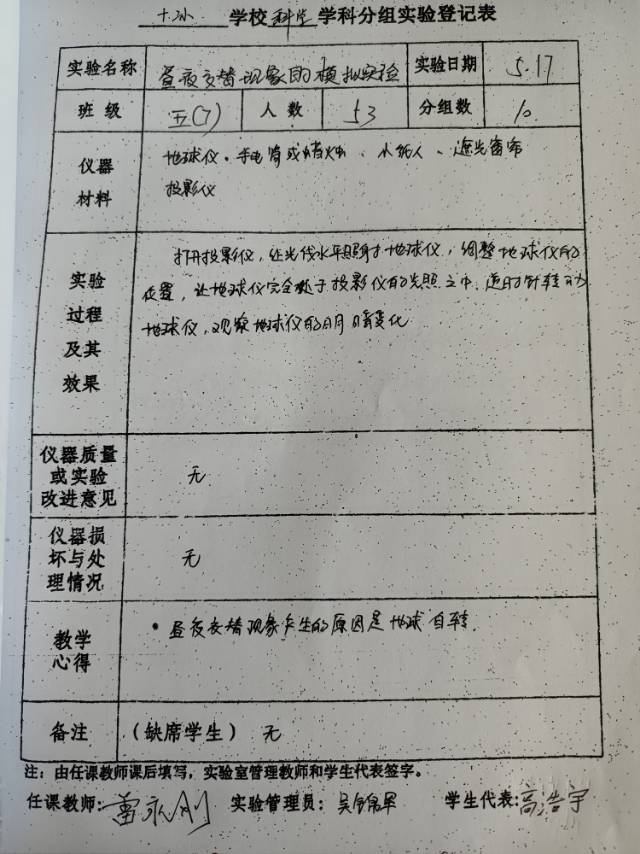 十小 学校 科学 学科分组实验登记表
实验名称 昼夜交替现象的模拟实验 实验日期 5.17
班级 五(7) 人数 53 分组数 10
仪器材料 地球仪、手电筒或蜡烛、小纸人、遮光窗布
投影仪
实验过程及其效果 打开投影仪,让光线水平照射于地球仪,调整地球仪的
位置,让地球仪完全处于投影仪的光照之中,逆时针转动
地球仪,观察地球仪的明暗变化
仪器质量或实验改进意见 无
仪器损坏与处理情况 无
教学心得 • 昼夜交替现象产生的原因是地球自转.
备注 (缺席学生) 无
注:由任课教师课后填写,实验室管理教师和学生代表签字。
任课教师: 雷永刚 实验管理员: 学生代表:高浩宇